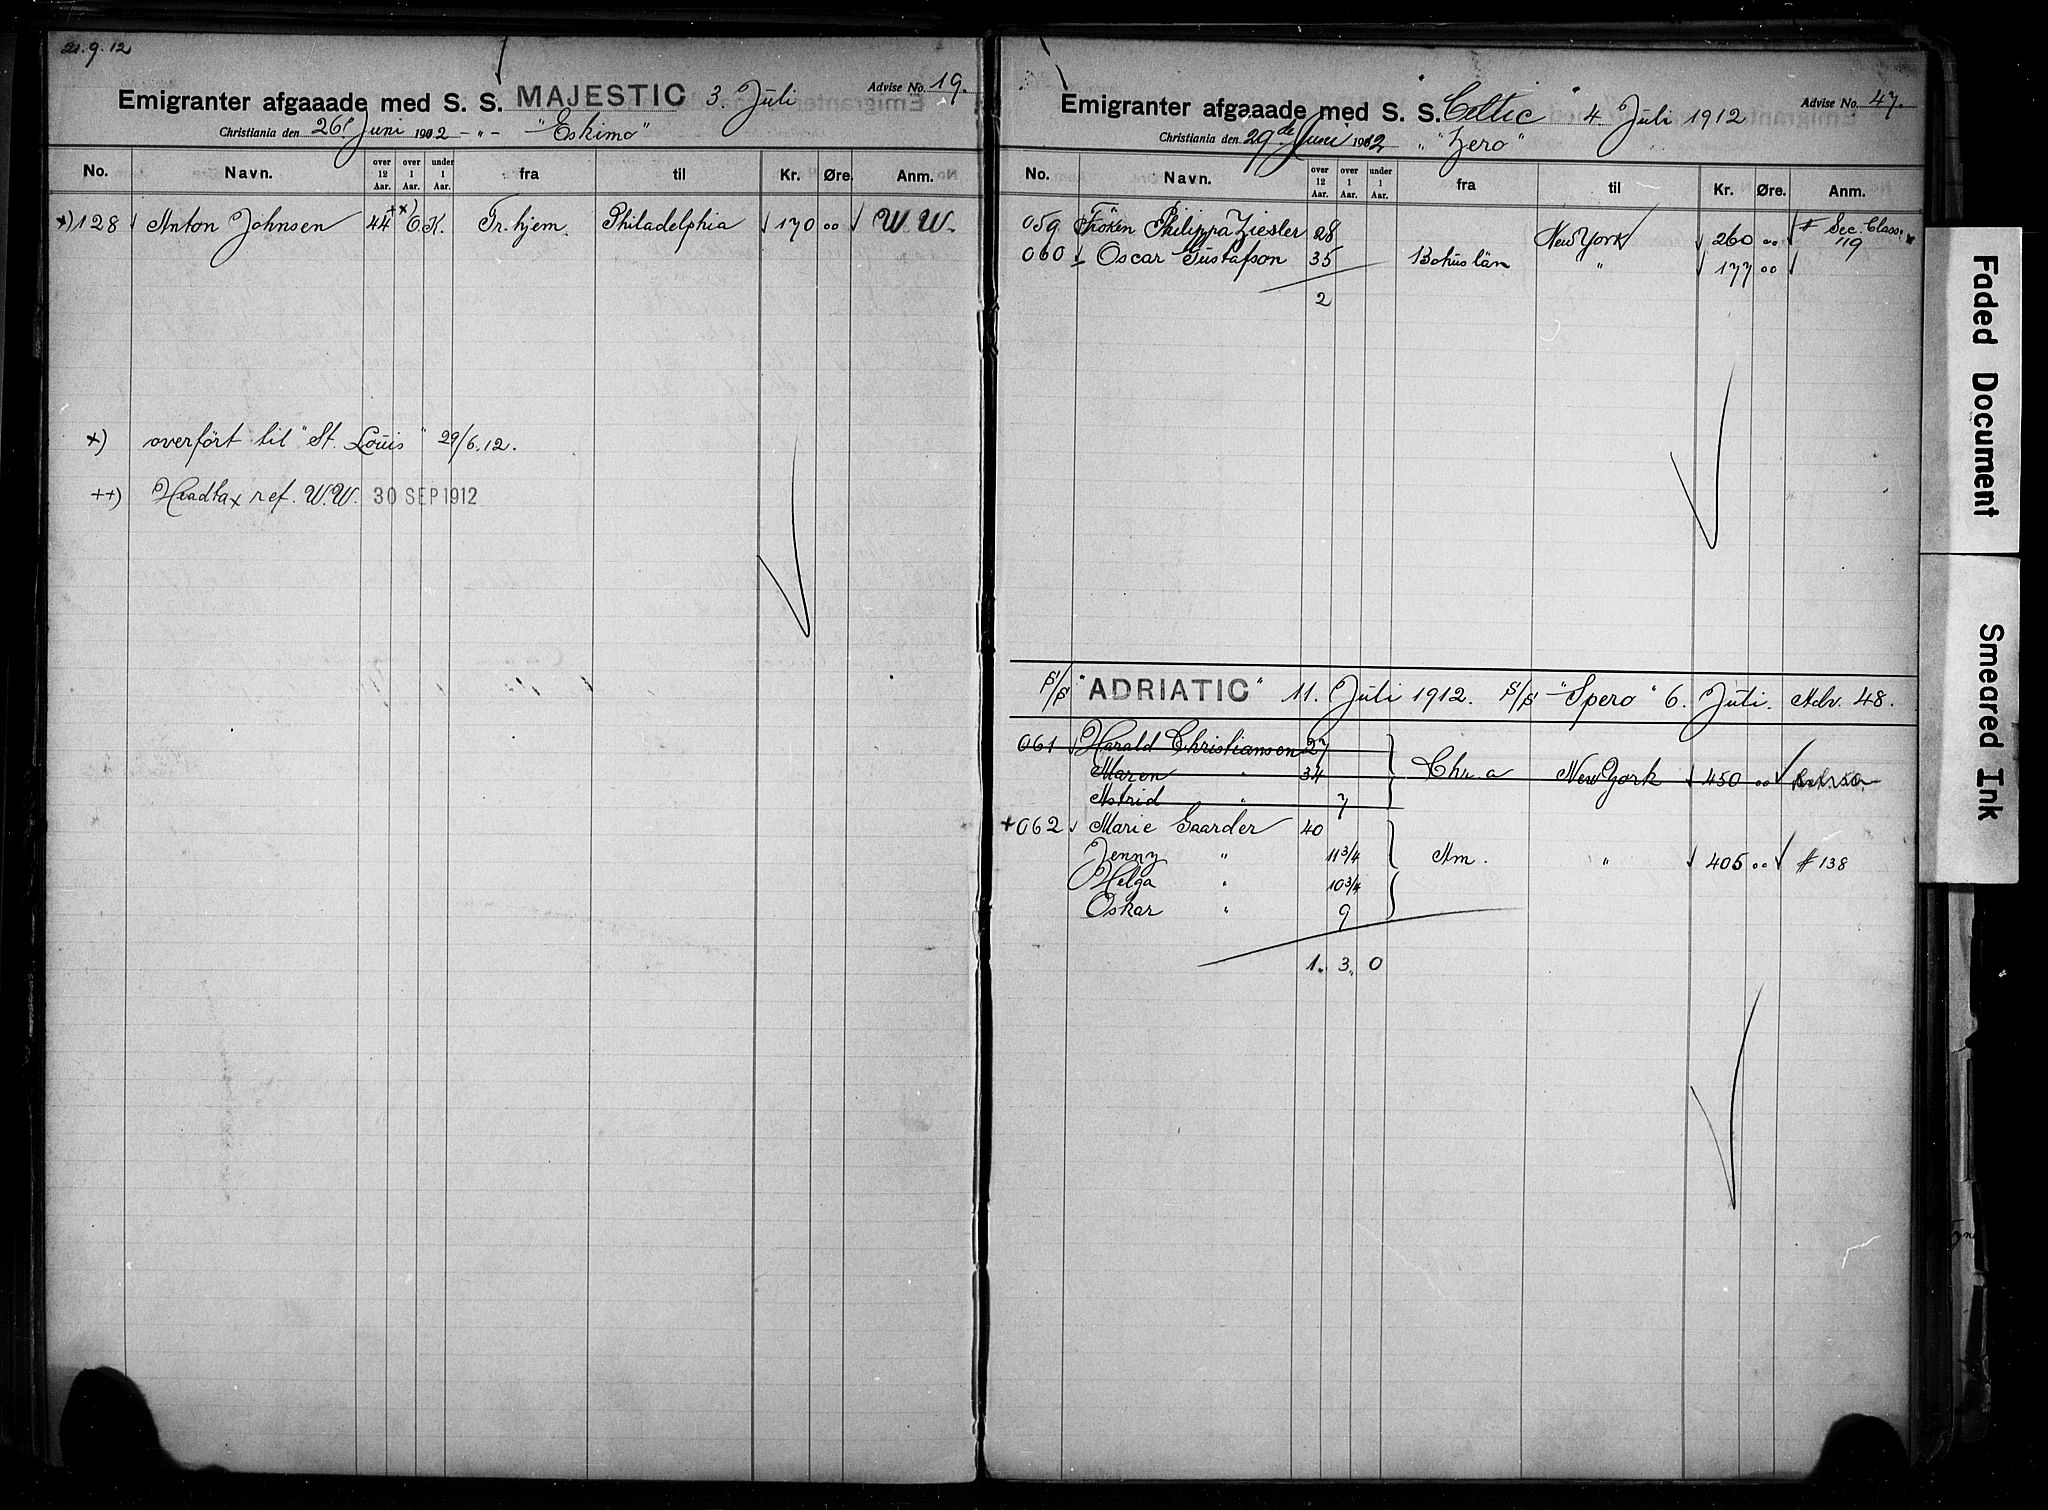 21.9.12
Emigranter afgaaade med S. S. MAJESTIC 3. Juli Advise No. 19.
Christiania den 26' Juni 1912 - " - "Eskimo"
No. Navn. over 12 Aar. over 1 Aar. under 1 Aar. fra til Kr. Øre. Anm.
×) 128 Anton Johnsen 44 ++) O.K. Tr.hjem. Philadelphia 170 00 W.W.
×) overført til "St. Louis" 29/6.12.
++) Headtax ref. W.W. 30 SEP 1912
Emigranter afgaaade med S. S. "Celtic" 4. Juli 1912 Advise No. 47.
Christiania den 29de Juni 1912 " "Zero"
No. Navn. over 12 Aar. over 1 Aar. under 1 Aar. fra til Kr. Øre. Anm.
059 Frøken Philippa Ziesler 28 New York 260 00 # Sec. Class.
119
060 Oscar Gustafson 35 Bohuslän " 177 00
2
S/S "ADRIATIC" 11. Juli 1912. S/S "Spero" 6. Juli. Adv. 48.
061 Harald Christiansen 27
Maren " 34 Chr.a New York 450 00
Astrid " 7
+ 062 Marie Gaarder 40
Jenny " 11 3/4 Am. " 405 00 # 138
Helga " 10 3/4
Oskar " 9
1. 3. 0
Faded Document
Smeared Ink